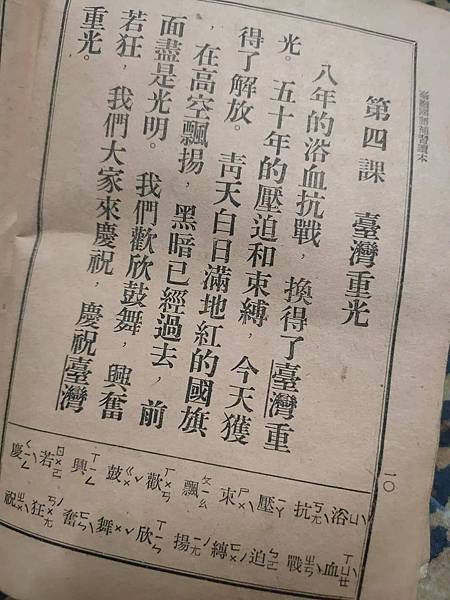 臺灣國語補習讀本
第四課 臺灣重光
八年的浴血抗戰,換得了臺灣重
光。五十年的壓迫和束縛,今天獲
得了解放。靑天白日滿地紅的國旗
,在高空飄揚,黑暗已經過去,前
面盡是光明。我們歡欣鼓舞,興奮
若狂,我們大家來慶祝,慶祝臺灣
重光。
一〇
浴ㄩˋ 血ㄒㄩㄝˋ
抗ㄎㄤˋ 戰ㄓㄢˋ
壓ㄧㄚ 迫ㄆㄛˋ
束ㄕㄨˋ 縛ㄈㄨˊ
飄ㄆㄧㄠ 揚ㄧㄤˊ
歡ㄏㄨㄢ 欣ㄒㄧㄣ
鼓ㄍㄨˇ 舞ㄨˇ
興ㄒㄧㄥ 奮ㄈㄣˋ
若ㄖㄨㄛˋ 狂ㄎㄨㄤˊ
慶ㄑㄧㄥˋ 祝ㄓㄨˋ